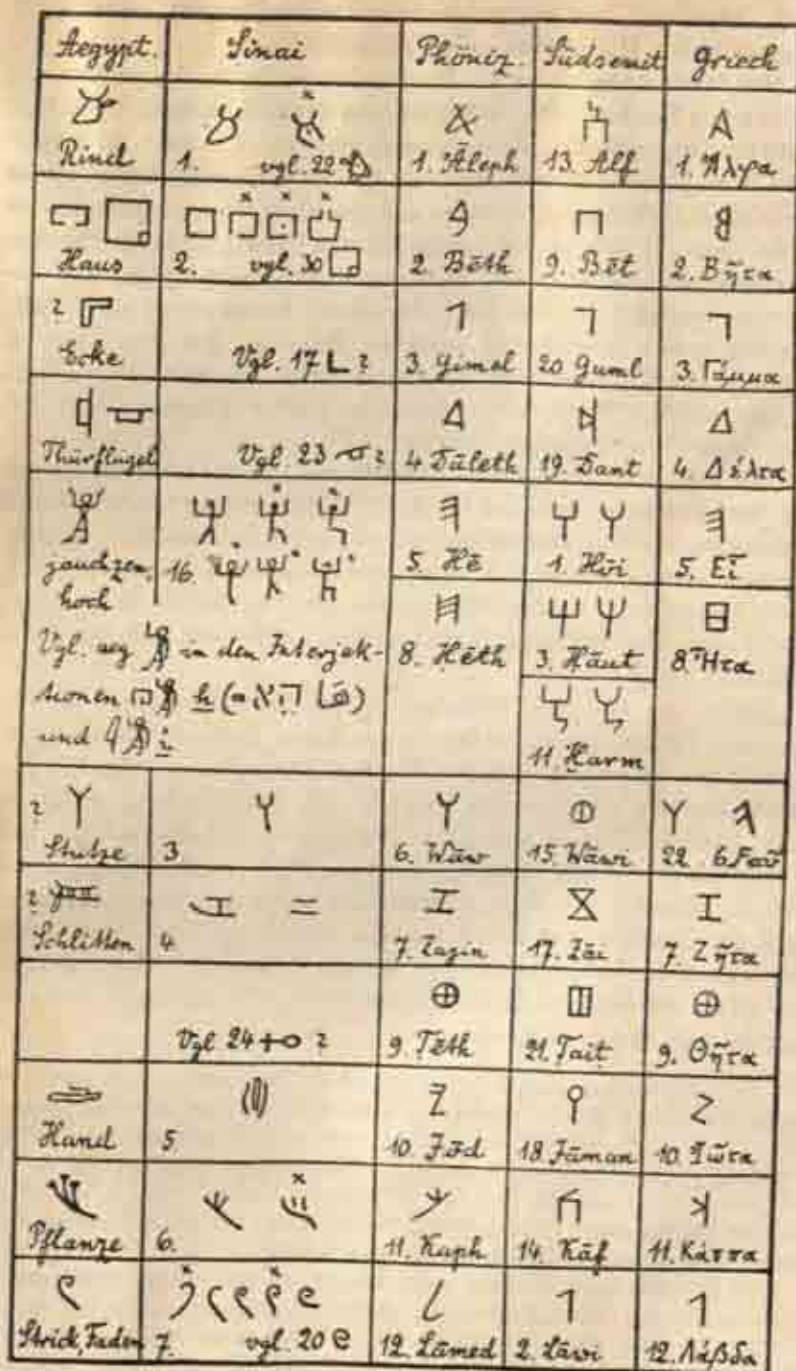 Aegypt. Sinai Phöniz. Südsemit Griech
Rind 1. vgl. 22 1. Āleph 13. Alf 1. Ἄλφα
Haus 2. vgl. 30 2. Bēth 9. Bēt 2. Βῆτα
? Ecke Vgl. 17 ? 3. Gimel 20 Guml 3. Γάμμα
Thürflügel Vgl. 23 ? 4 Dāleth 19. Dant 4. Δέλτα
jauchzen, 16. 5. Hē 1. Hōi 5. Εἶ
hoch
Vgl. aeg in den Interjek- 8. Ḥēth 3. Ḥāut 8. Ἦτα
tionen h (= הֵא)
und i 11. Ḫarm
? Stütze 3 6. Wāw 15. Wāwi 22 6. Ϝαῦ
? Schlitten 4 7. Zazin 17. Zāi 7. Ζῆτα
Vgl 24 ? 9. Ṭēth 21. Ṭait 9. Θῆτα
Hand 5 10 Jōd 18. Jāman 10. Ἰῶτα
Pflanze 6. 11. Kaph 14. Kāf 11. Κάππα
Strick, Faden 7. vgl. 20 12. Lāmed 2. Lāwi 12. Λάβδα